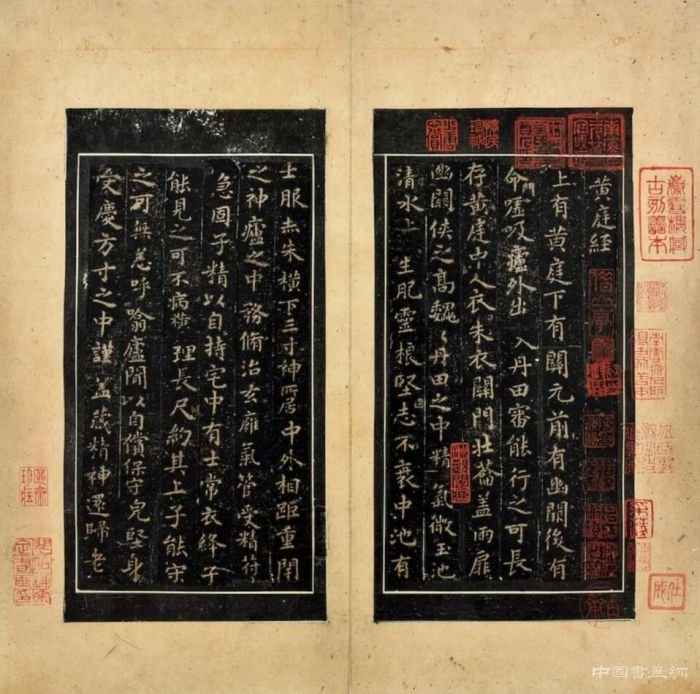 黄庭経
上有黄庭下有關元前有幽闕後有
命門嘘吸廬外出入丹田審能行之可長
存黄庭中人衣朱衣關門壮蘥盖兩扉
幽闕侠之髙魏〻丹田之中精氣微玉池
清水上生肥靈根堅志不衰中池有
士服赤朱横下三寸神所居中外相距重閉
之神廬之中務脩治玄廱氣管受精符
急固子精以自持宅中有士常衣絳子
能見之可不病横理長尺約其上子能守
之可無恙呼噏廬間以自償保守完堅身
受慶方寸之中謹盖藏精神還歸老
古刻善本
中国書画網